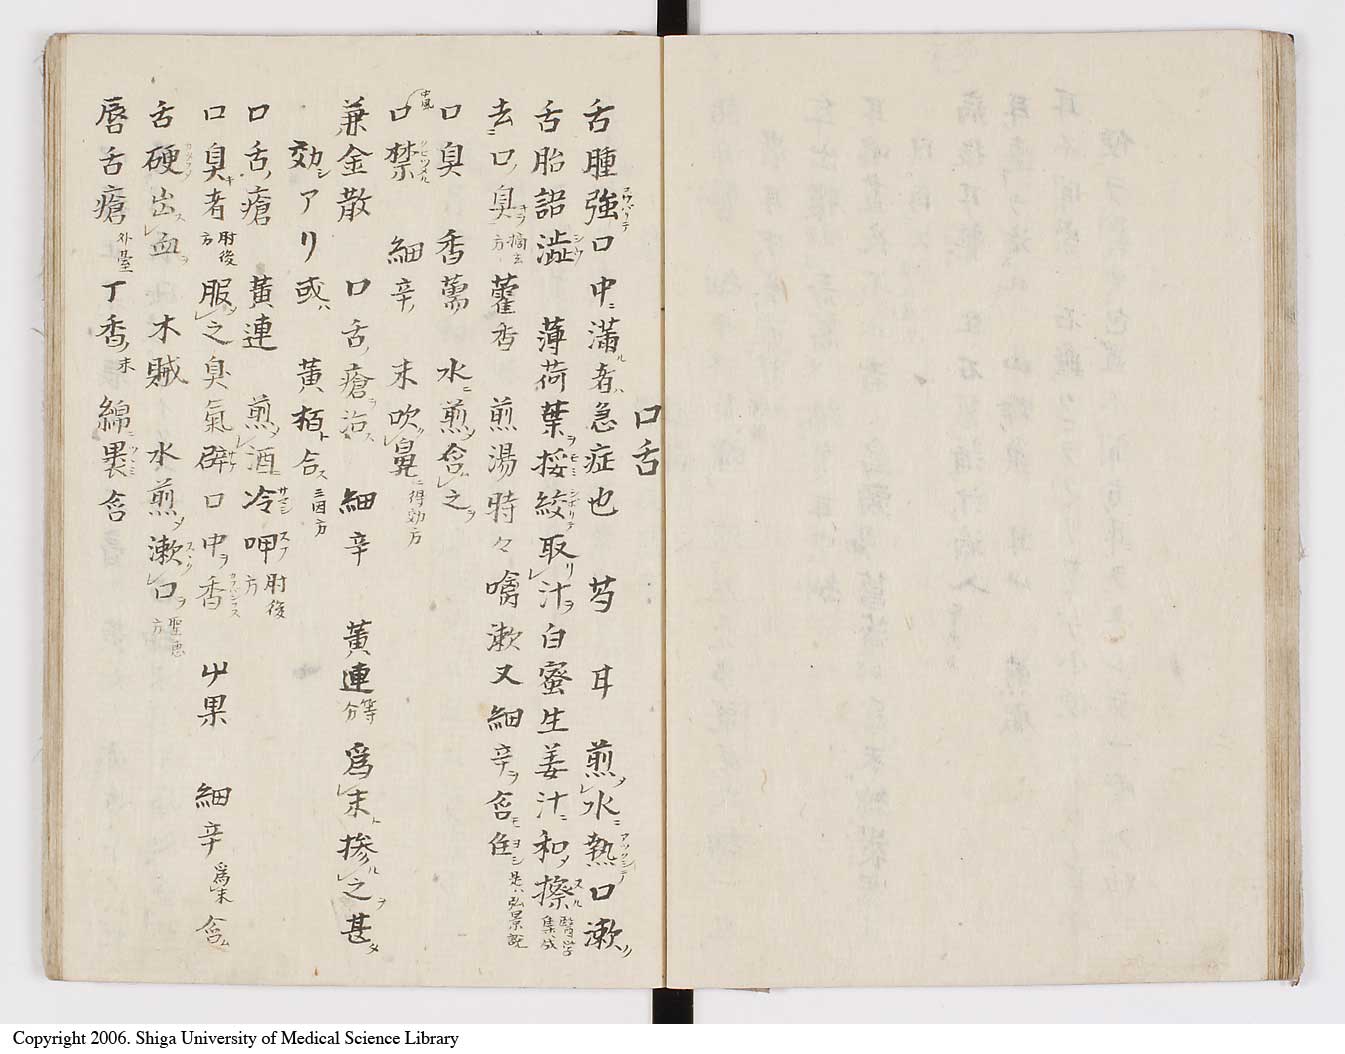 口舌
舌腫強口中ニ満ル者ハ急症也　芎　耳　煎メ水ニ熱口漱
舌胎語澁　薄荷葉ヲ挼絞取リ汁ヲ白蜜生姜汁ニ和メ擦スル　醫学集成
去ニ口ノ臭ヲ　摘玄方　藿香　煎湯時々噙漱又細辛ヲ含モ佳ヨシ　是ハ弘景説
口臭　香薷　水ニ煎メ含ム之ヲ
中風　口禁　細辛ノ末吹ク鼻ニ　得効方
兼金散　口舌ノ瘡ヲ治ス　細辛　黄連　等分　為末ト摻ル之ヲ甚タ
効シアリ或ハ　黄栢ト合ス　三因方
口舌ノ瘡　黄連　煎メ酒ニ冷サマシ呷スフ　肘後方
口臭キ者　肘後方　服之臭氣辟サケ口中ヲ香カフバシフス　艸果　細辛　為末　含ム
舌硬出ス血ヲ　木賊　水煎メ漱スヽク口ヲ　聖惠方
唇舌瘡　外臺　丁香ノ末　綿ニツヽミ裹含
Copyright 2006. Shiga University of Medical Science Library